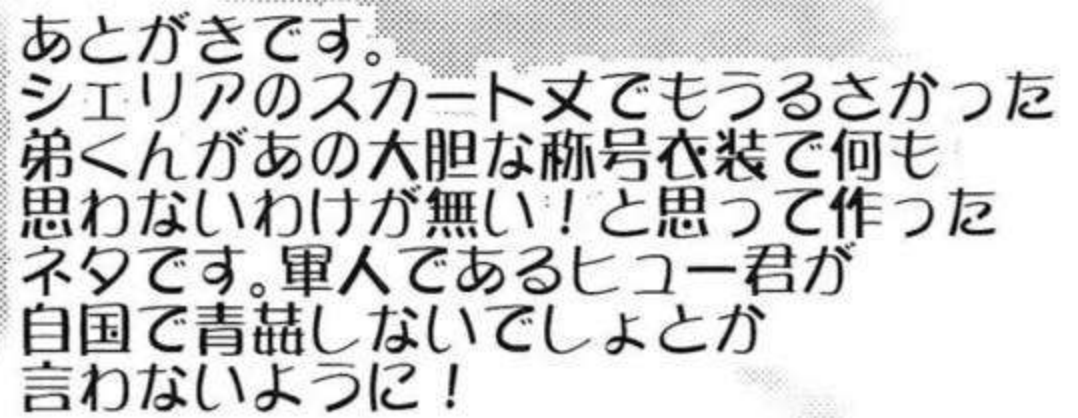 あとがきです。
シェリアのスカート丈でもうるさかった
弟くんがあの大胆な称号衣装で何も
思わないわけが無い！と思って作った
ネタです。軍人であるヒュー君が
自国で青姦しないでしょとか
言わないように！